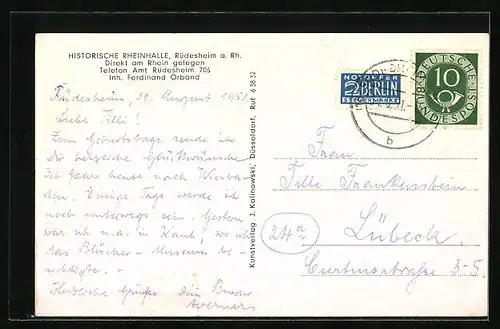 HISTORISCHE RHEINHALLE, Rüdesheim a. Rh.
Direkt am Rhein gelegen
Telefon Amt Rüdesheim 706
Inh. Ferdinand Orband
Rüdesheim, 31. August 1951.
Liebe Tilli!
Zum Geburtstage sende ich
Dir herzliche Glückwünsche.
Ich fahre heute nach Wiesba-
den. Einige Tage werde ich
noch unterwegs sein. Gestern
war ich u.a. in Kaub, wo ich
das Blücher-Museum be-
sichtigte. -
Herzliche Grüße Dein Bruder
Werner
Kunstverlag J. Kalinowski, Düsseldorf, Ruf 6 38 32
NOTOPFER
2 BERLIN
STEUERMARKE
DEUTSCHE
10
BUNDESPOST
b
Frau
Tilli Frankenstein
24a
Lübeck
Curtiusstraße 3-5.